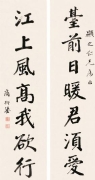 臺前日暖君須愛
江上風高我欲行